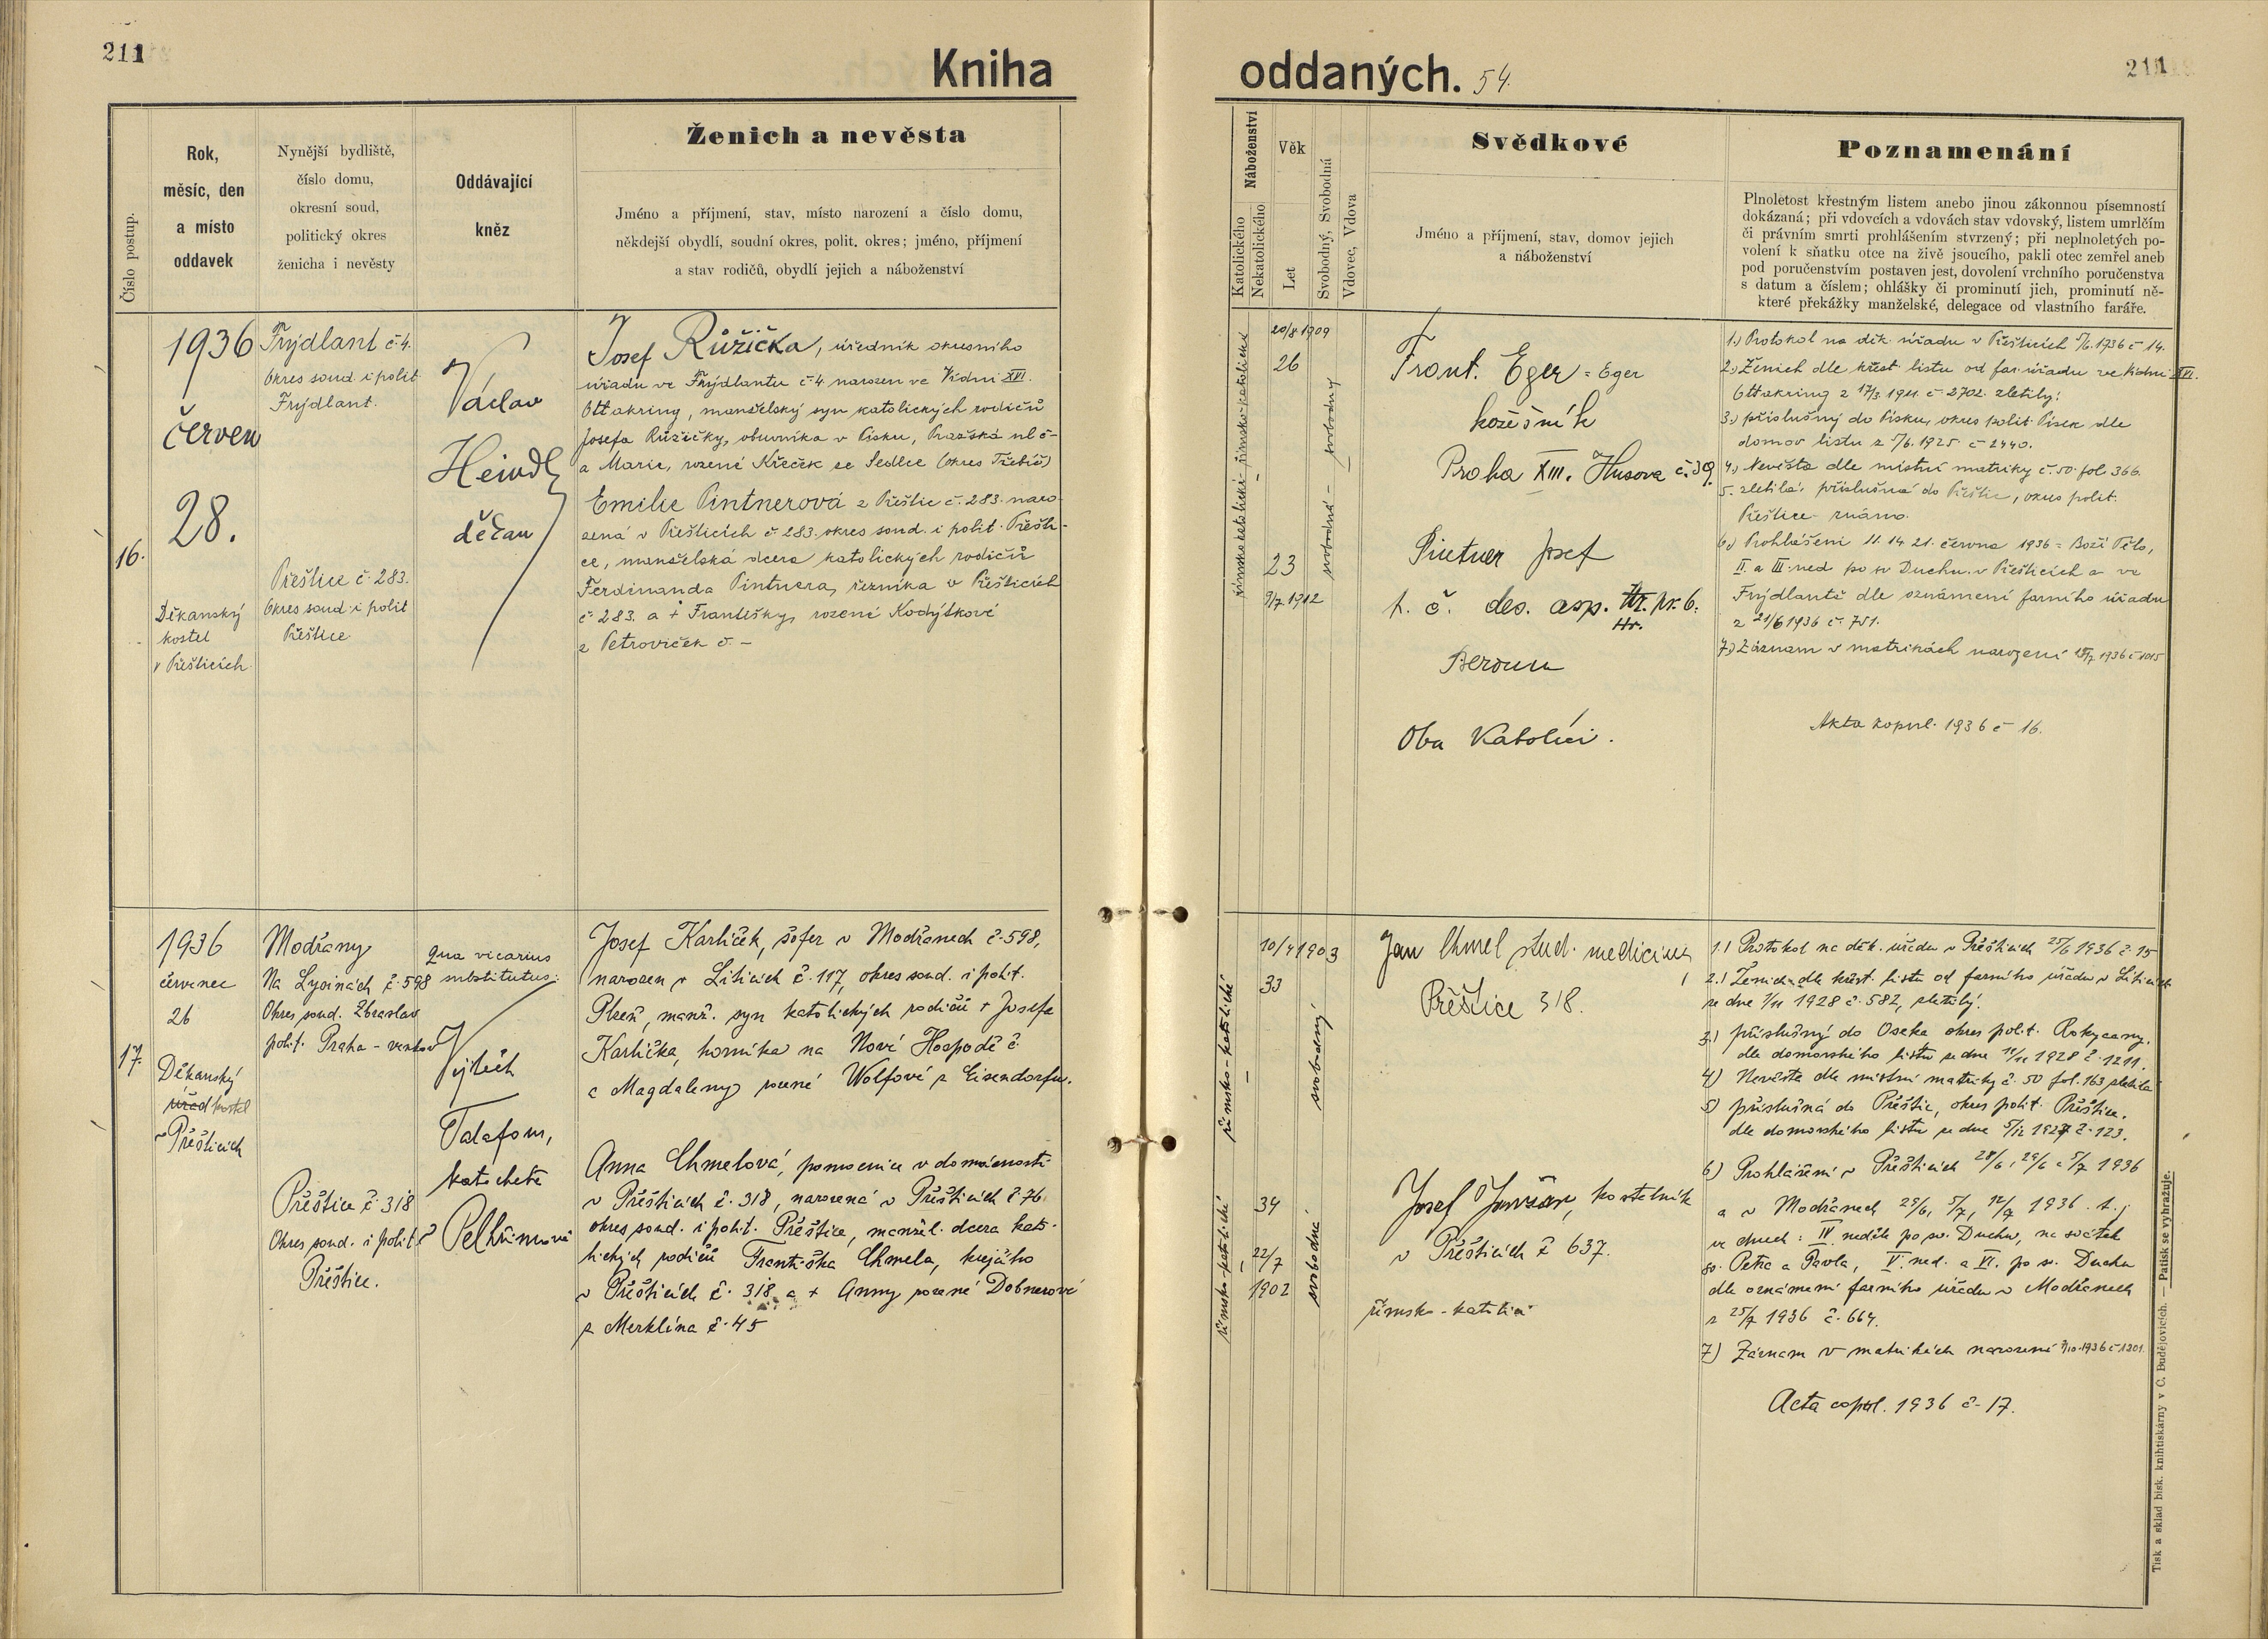 211
Kniha
Ženich a nevěsta
Číslo postup.
Rok,
měsíc, den
a místo
oddavek
Nynější bydliště,
číslo domu,
okresní soud,
politický okres
ženicha i nevěsty
Oddávající
kněz
Jméno a příjmení, stav, místo narození a číslo domu,
někdejší obydlí, soudní okres, polit. okres; jméno, příjmení
a stav rodičů, obydlí jejich a náboženství
16.
1936
červen
28.
Děkanský
kostel
v Přešticích
Frýdlant č. 4.
Okres soud. i polit.
Frýdlant.
Přeštice č. 283.
Okres soud. i polit
Přeštice
Václav
Heindl
děčan
Josef Růžička, úředník okresního
úřadu ve Frýdlantu č. 4. narozen ve Vídni XVI.
Ottakring, manželský syn katolických rodičů
Josefa Růžičky, obuvníka v Písku, Pražská ul č -
a Marie, rozené Křeček se Sedlce (okres Třebíč)
Emilie Pintnerová z Přeštic č. 283. naro-
zená v Přešticích č. 283. okres soud. i polit. Přešti-
ce, manželská dcera katolických rodičů
Ferdinanda Pintnera, řezníka v Přešticích
č. 283. a + Františky, rozené Kodýtkové
z Petroviček č. -
17.
1936
červenec
26
Děkanský
úřad kostel
v Přešticích
Modřany
Na Lysinách č. 598
Okres soud. Zbraslav
polit. Praha - venkov
Přeštice č. 318
Okres soud. i polit.
Přeštice.
qua vicarius
substitutus:
Vojtěch
Talafous,
katecheta
v Pelhřimově
Josef Karlíček, šofer v Modřanech č. 598,
narozen v Liticích č. 117, okres soud. i polit.
Plzeň, manž. syn katolických rodičů + Josefa
Karlíčka, horníka na Nové Hospodě č.
a Magdaleny rozené Wolfové z Eisendorfu.
Anna Chmelová, pomocnice v domácnosti
v Přešticích č. 318, narozená v Přešticích č. 76.
okres soud. i polit. Přeštice, manžel. dcera kato-
lických rodičů Františka Chmela, krejčího
v Přešticích č. 318 a + Anny rozené Dobnerové
z Merklína č. 45
oddaných. 54.
211
Náboženství
Katolického
Nekatolického
Věk
Let
Svobodný, Svobodná
Vdovec, Vdova
Svědkové
Jméno a příjmení, stav, domov jejich
a náboženství
Poznamenání
Plnoletost křestným listem anebo jinou zákonnou písemností
dokázaná; při vdovcích a vdovách stav vdovský, listem umrlčím
či právním smrti prohlášením stvrzený; při neplnoletých po-
volení k sňatku otce na živě jsoucího, pakli otec zemřel aneb
pod poručenstvím postaven jest, dovolení vrchního poručenstva
s datum a číslem; ohlášky či prominutí jich, prominutí ně-
které překážky manželské, delegace od vlastního faráře.
římsko-katolické - římsko-katolické
20/8 1909
26
23
9/7 1912
svobodná - svobodný
Frant. Eger = Eger
kožešník
Praha XIII. Husova č. 39.
Pintner Josef
t. č. des. asp. Hr. pr. 6.
Hr.
Beroun
Oba Katolíci.
1.) Protokol na děk. úřadu v Přešticích 5/6. 1936 č 14.
2.) Ženich dle křest. listu od far. úřadu ve Vídni XVI.
Ottakring z 17/3. 1911. č 2702. zletilý;
3.) příslušný do Písku, okres polit. Písek dle
domov listu z 5/6. 1925. č 2440.
4.) Nevěsta dle místní matriky č. 50. fol. 366.
5. zletilá, příslušná do Přeštic, okres polit.
Přeštice - známo.
6.) Prohlášeni 11. 14. 21. června 1936 = Boží Tělo,
II. a III. ned po sv Duchu v Přešticích a ve
Frýdlantě dle oznámení farního úřadu
z 21/6 1936 č. 751.
7.) Záznam v matrikách narození 15/7 1936 č 1015
Akta kopul. 1936 č 16.
římsko-katolické
10/4 1903
33
svobodný
Jan Chmel stud. medicíny
Přeštice 318.
římsko-katolické
34
22/7
1902
svobodné
kostelník
v Přešticích č 637.
římsko-katolíci
1.) Protokol na děk. úřadu v Přešticích 25/6 1936 č. 15
2.) Ženich dle křest. listu od farního úřadu v Liticích
ze dne 7/11 1928 č. 582, zletilý.
3.) příslušný do Oseka okres polit. Rokycany.
dle domovského listu ze dne 12/11 1928 č. 1211.
4) Nevěsta dle místní matriky č. 50 fol. 163 zletilá
5) příslušná do Přeštic, okres polit. Přeštice.
dle domovského listu ze dne 5/12 1927 č. 123.
6) Prohlášeni v Přešticích 28/6, 29/6 a 5/7 1936
a v Modřanech 29/6, 5/7, 12/7 1936. t. j.
ve dnech: IV. neděle po sv. Duchu, na svátek
sv. Petra a Pavla, V. ned. a VI. po sv. Duchu
dle oznámení farního úřadu v Modřanech
z 25/7 1936 č. 664.
7) Záznam v matrikách narození 7/10. 1936 č 1301.
Acta copul. 1936 č. 17.
Tisk a sklad bisk. knihtiskárny v Č. Budějovicích. — Patisk se vyhražuje.